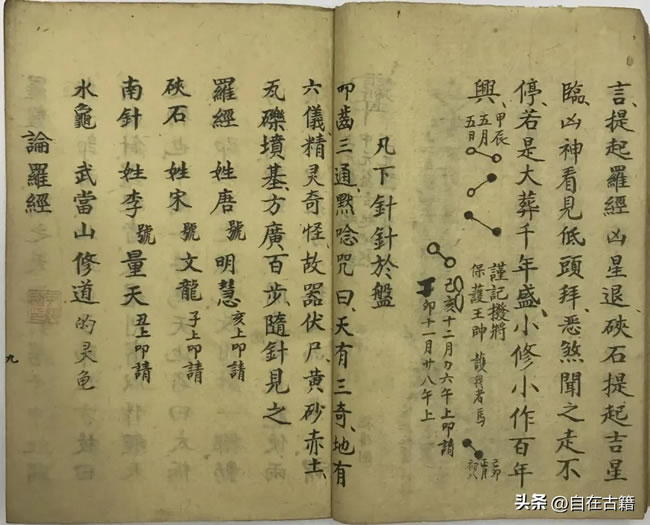 言、提起羅經凶星退、硤石提起吉星
臨、凶神看見低頭拜、惡煞聞之走不
停、若是大葬千年盛、小修小作百年
興、
甲辰
五月
五日
謹記撥將
保護王帥
己亥十二月初六午上叩請
卯十一月廿八午上
凡下針針於盤
叩齒三通、默唸咒曰、天有三奇、地有
六儀、精灵奇怪、故噐伏尸、黄砂赤土、
瓦礫墳基、方廣百步、隨針見之
羅經 姓唐 號 明慧 亥上叩請
硤石 姓宋 號 文龍 子上叩請
南針 姓李 號 量天 丑上叩請
水龜 武當山修道的灵龟
論羅經
九
头条 @自在古籍